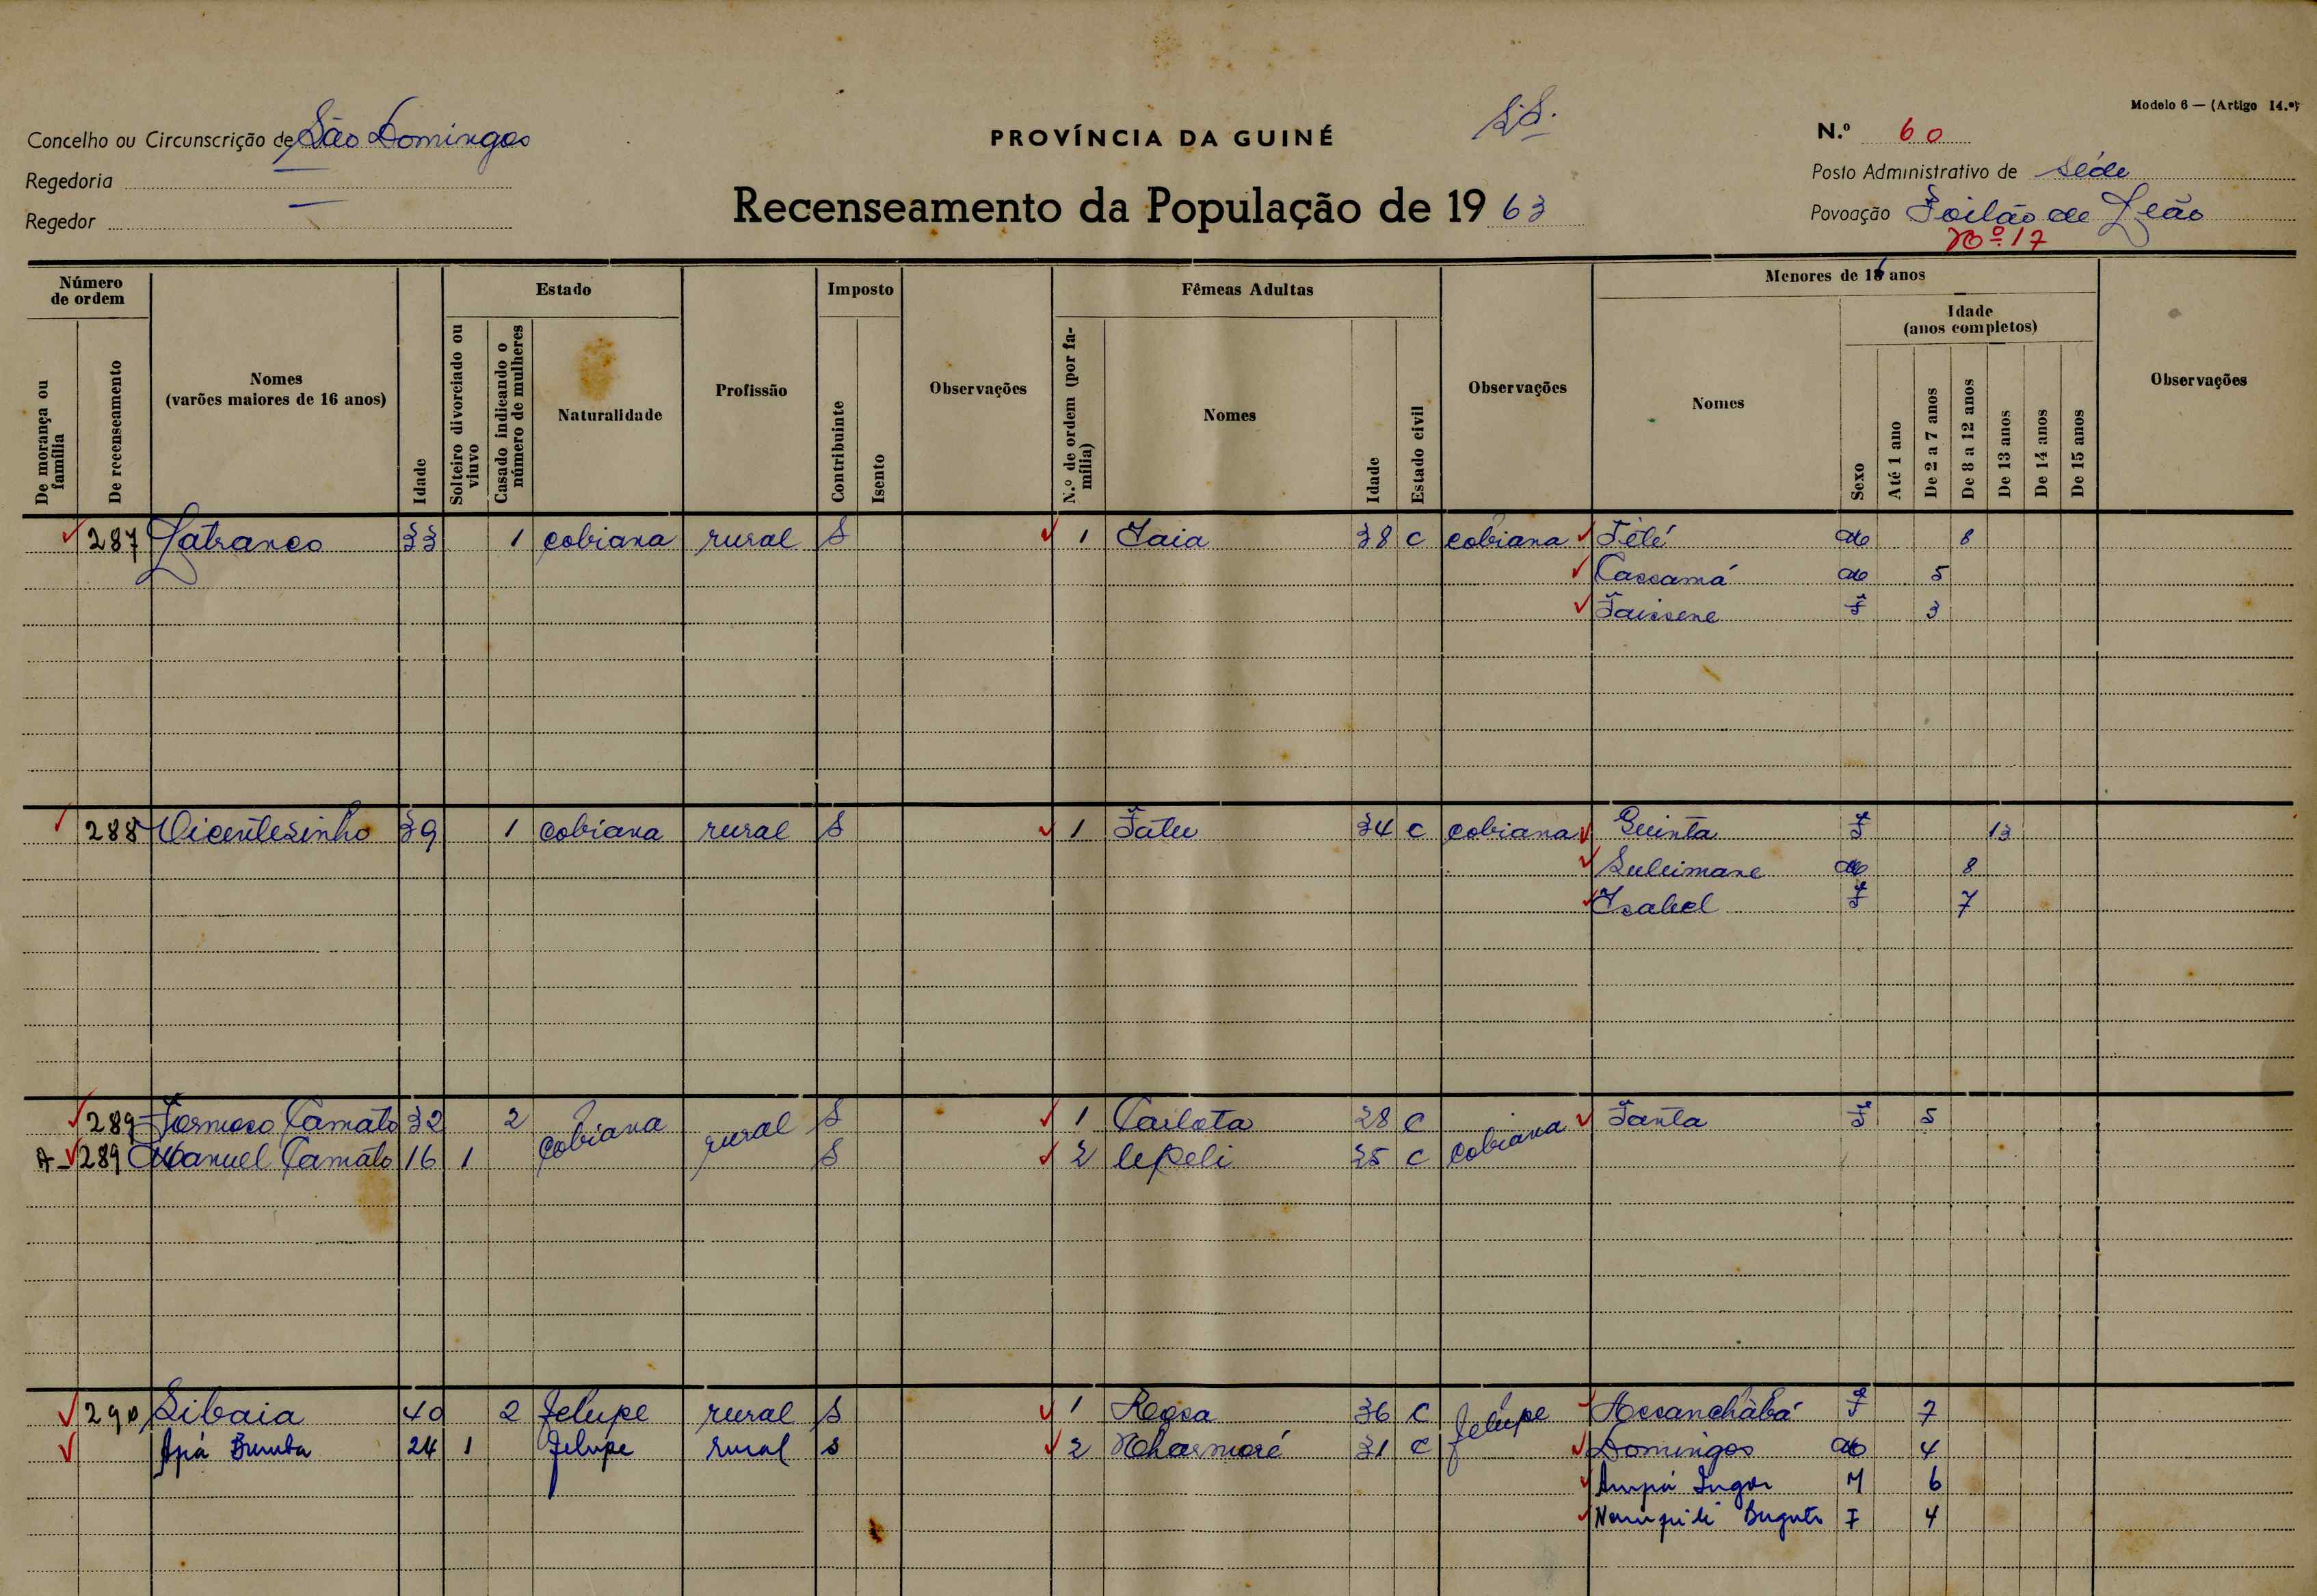 Modelo 6 — (Artigo 14.º)
Concelho ou Circunscrição de São Domingos
PROVÍNCIA DA GUINÉ
N.º 60
Regedoria —
Posto Administrativo de Séde
Regedor —
Recenseamento da População de 1963
Povoação Foilão de Leão
Nº 17
Número de ordem
Estado
Imposto
Fêmeas Adultas
Menores de 16 anos
Idade (anos completos)
De morança ou família
De recenseamento
Nomes (varões maiores de 16 anos)
Idade
Solteiro divorciado ou viuvo
Casado indicando o número de mulheres
Naturalidade
Profissão
Contribuinte
Isento
Observações
N.º de ordem (por família)
Nomes
Idade
Estado civil
Observações
Nomes
Sexo
Até 1 ano
De 2 a 7 anos
De 8 a 12 anos
De 13 anos
De 14 anos
De 15 anos
Observações
287 Latranco 33 1 cobiana rural S 1 Jaia 38 C cobiana Tété M 8
Cassamá M 5
Faissene F 3
288 Vicentesinho 39 1 cobiana rural S 1 Fatu 34 C cobiana Quinta F 13
Suleimane M 8
Isabel F 7
289 Formoso Camato 32 2 cobiana rural S 1 Carlota 28 C cobiana Fanta F 5
A- 289 Manuel Camato 16 1 S 2 25 C
290 Libaia 40 2 felupe rural S 1 Rosa 36 C felupe Assanchàbá F 7
Apá Bumba 24 1 felupe rural S 2 31 C Domingos M 4
Ampá M 6
F 4